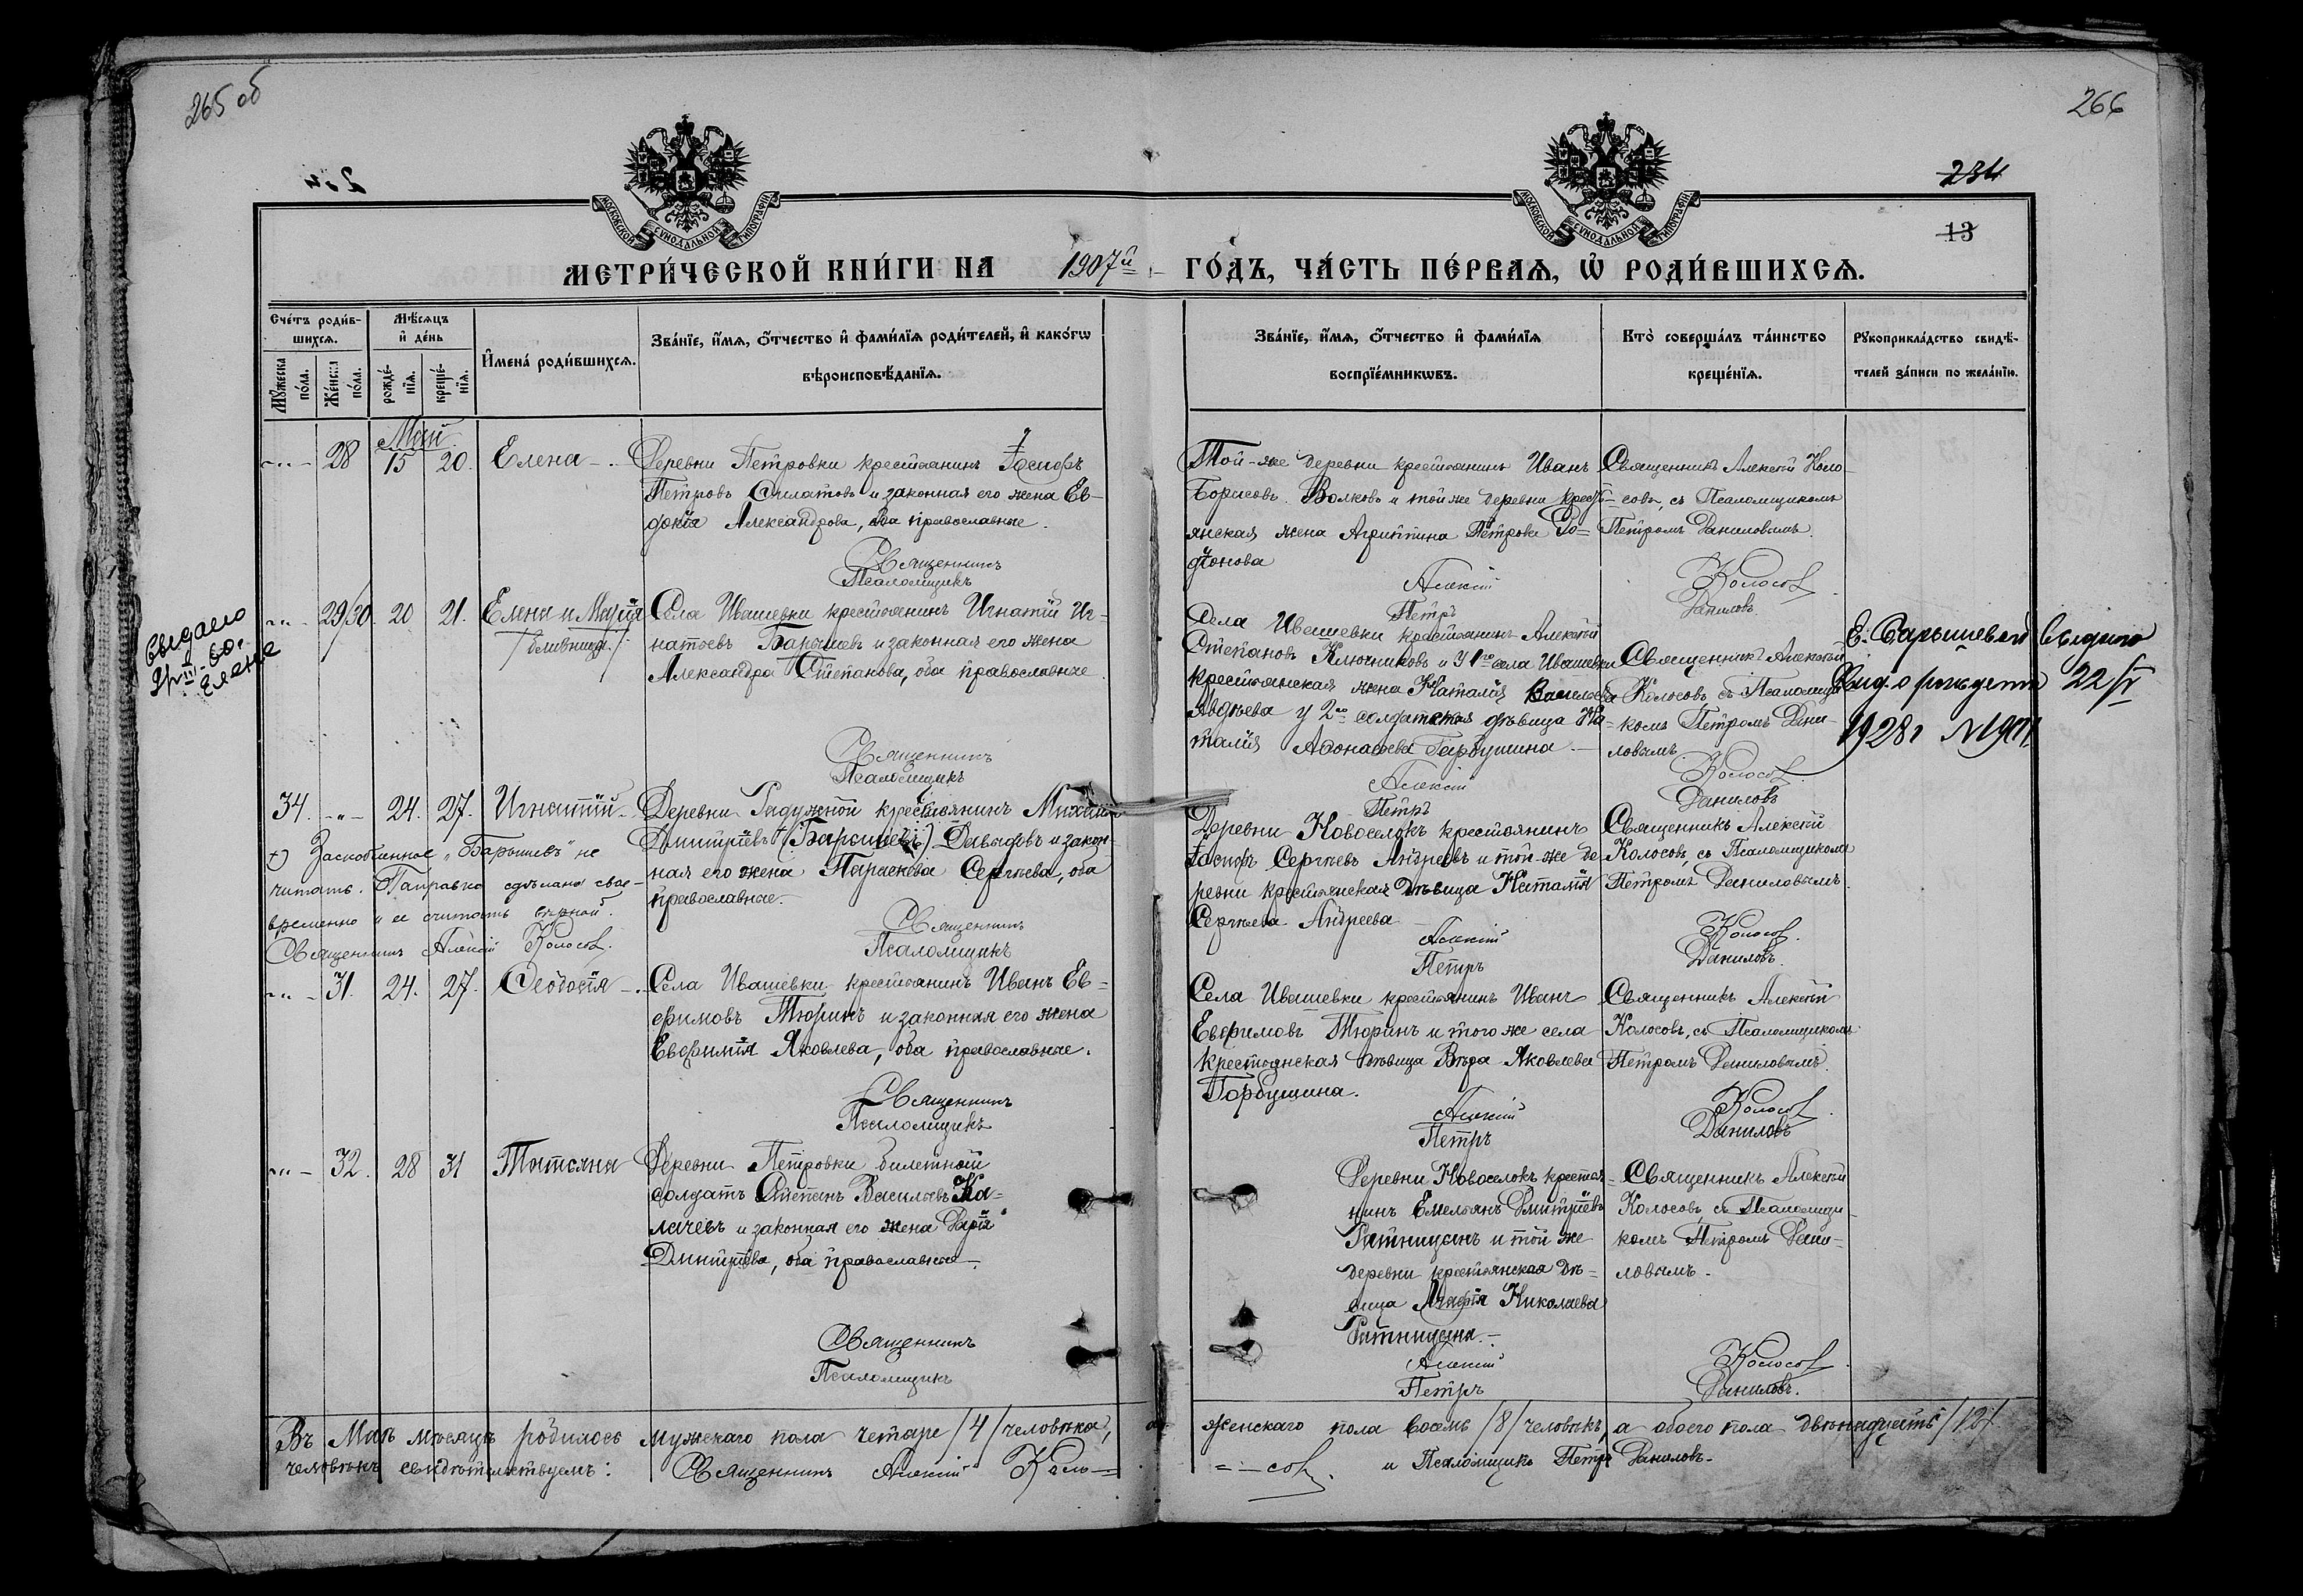 265 об
266
234
13
МОСКОВСКОЙ СѴНОДАЛЬНОЙ ТИПОГРАФІИ
МОСКОВСКОЙ СѴНОДАЛЬНОЙ ТИПОГРАФІИ
МЕТРИ́ЧЕСКОЙ КНИ́ГИ НА 1907й ГО́ДЪ, ЧА́СТЬ ПЕ́РВАѦ, Ѡ҆ РОДИ́ВШИХСѦ.
Сче́тъ роди́в-
шихсѧ.
Мѣ́сѧцъ
и҆ де́нь
Мꙋ́жеска
по́ла.
Же́нска
по́ла.
рожде́-
нїѧ.
креще́-
нїѧ.
И҆мена̀ роди́вшихсѧ.
Зва́нїе, и҆́мѧ, ѻ҆́тчество и҆ фами́лїѧ роди́телей, и҆ како́гѡ
вѣроисповѣ́данїѧ.
Зва́нїе, и҆́мѧ, ѻ҆́тчество и҆ фами́лїѧ
воспрїе́мникѡвъ.
Кто̀ соверша́лъ та́инство
креще́нїѧ.
Рꙋкоприкла́дство свидѣ́-
телей за́писи по жела́нїю.
Май
-"- 28 15 20. Елена
Деревни Петровки крестьянинъ Іосифъ
Петровъ Силатовъ и законная его жена Ев-
докія Александрова, оба православные.
Священникъ
Псаломщикъ
Той-же деревни крестьянинъ Иванъ
Борисовъ Волковъ и той же деревни кресть-
янская жена Агриппина Петрова Ро-
діонова
Алексій
Петръ
Священникъ Алексій Коло-
совъ, съ Псаломщикомъ
Петромъ Даниловымъ.
Колосов
Даниловъ
Выдано
Елене
-"- 29/30. 20 21. Елена и Марія
/близницы/
Села Ивашевки крестьянинъ Игнатій Иг-
натьевъ Барышевъ и законная его жена
Александра Степанова, оба православные.
Священникъ
Псаломщикъ
Села Ивашевки крестьянинъ Алексѣй
Степановъ Ключниковъ и У 1го села Ивашевки
крестьянская жена Наталія Васильева
Авдѣева у 2ой солдатская дѣвица На-
талія Афонасьева Гарбушина
Алексій
Петръ
Священникъ Алексѣй
Колосовъ, съ Псаломщи-
комъ Петромъ Дани-
ловымъ.
Колосов
Даниловъ
Е. Барышевой выдано
1928г
34. -"- 24. 27. Игнатій
Деревни Радужной крестьянинъ Михаилъ
Дмитріевъ + (Барышевъ) Давыдовъ и закон-
ная его жена Параскева Сергѣева, оба
православные.
+) Заскобленное "Барышевъ" не
читать. Поправка сдѣлана свое-
временно и ее считать вѣрной.
Священникъ Алексій Колосов.
Священникъ
Псаломщикъ
Деревни Новоселокъ крестьянинъ
Іосифъ Сергѣевъ Андреевъ и той-же де-
ревни крестьянская дѣвица Наталія
Сергѣева Андреева
Алексій
Петръ
Священникъ Алексѣй
Колосовъ, съ Псаломщикомъ
Петромъ Даниловымъ.
Колосов.
Даниловъ.
-"- 31. 24. 27. Ѳеодосія
Села Ивашевки крестьянинъ Иванъ Ев-
фимовъ Тюринъ и законная его жена
Евфимія Яковлева, оба православные.
Священникъ
Псаломщикъ
Села Ивашевки крестьянинъ Иванъ
Евфимовъ Тюринъ и того же села
крестьянская дѣвица Вѣра Яковлева
Горбушина.
Алексій
Петръ
Священникъ Алексѣй
Колосовъ, съ Псаломщикомъ
Петромъ Даниловымъ.
Колосов.
Даниловъ
-"- 32. 28 31 Татьяна
Деревни Петровки билетный
солдатъ Степанъ Васильевъ Ка-
лачевъ и законная его жена Дарія
Дмитріева, оба православные.
Священникъ
Псаломщикъ
Деревни Новоселокъ крестья-
нинъ Емельянъ Дмитріевъ
Ратницынъ и той же
деревни крестьянская дѣ-
вица Марія Николаева
Ратницына.
Алексій
Петръ
Священникъ Алексѣй
Колосовъ, съ Псаломщи-
комъ Петромъ Дани-
ловымъ.
Колосов.
Даниловъ.
Въ Маѣ мѣсяцѣ родилось мужскаго пола четыре /4/ человѣка, а женскаго пола восемь /8/ человѣкъ, а обоего пола двѣнадцать /12/.
человѣкъ свидѣтельствуемъ: Священникъ Алексій Коло- -сов. и Псаломщикъ Петръ Даниловъ.